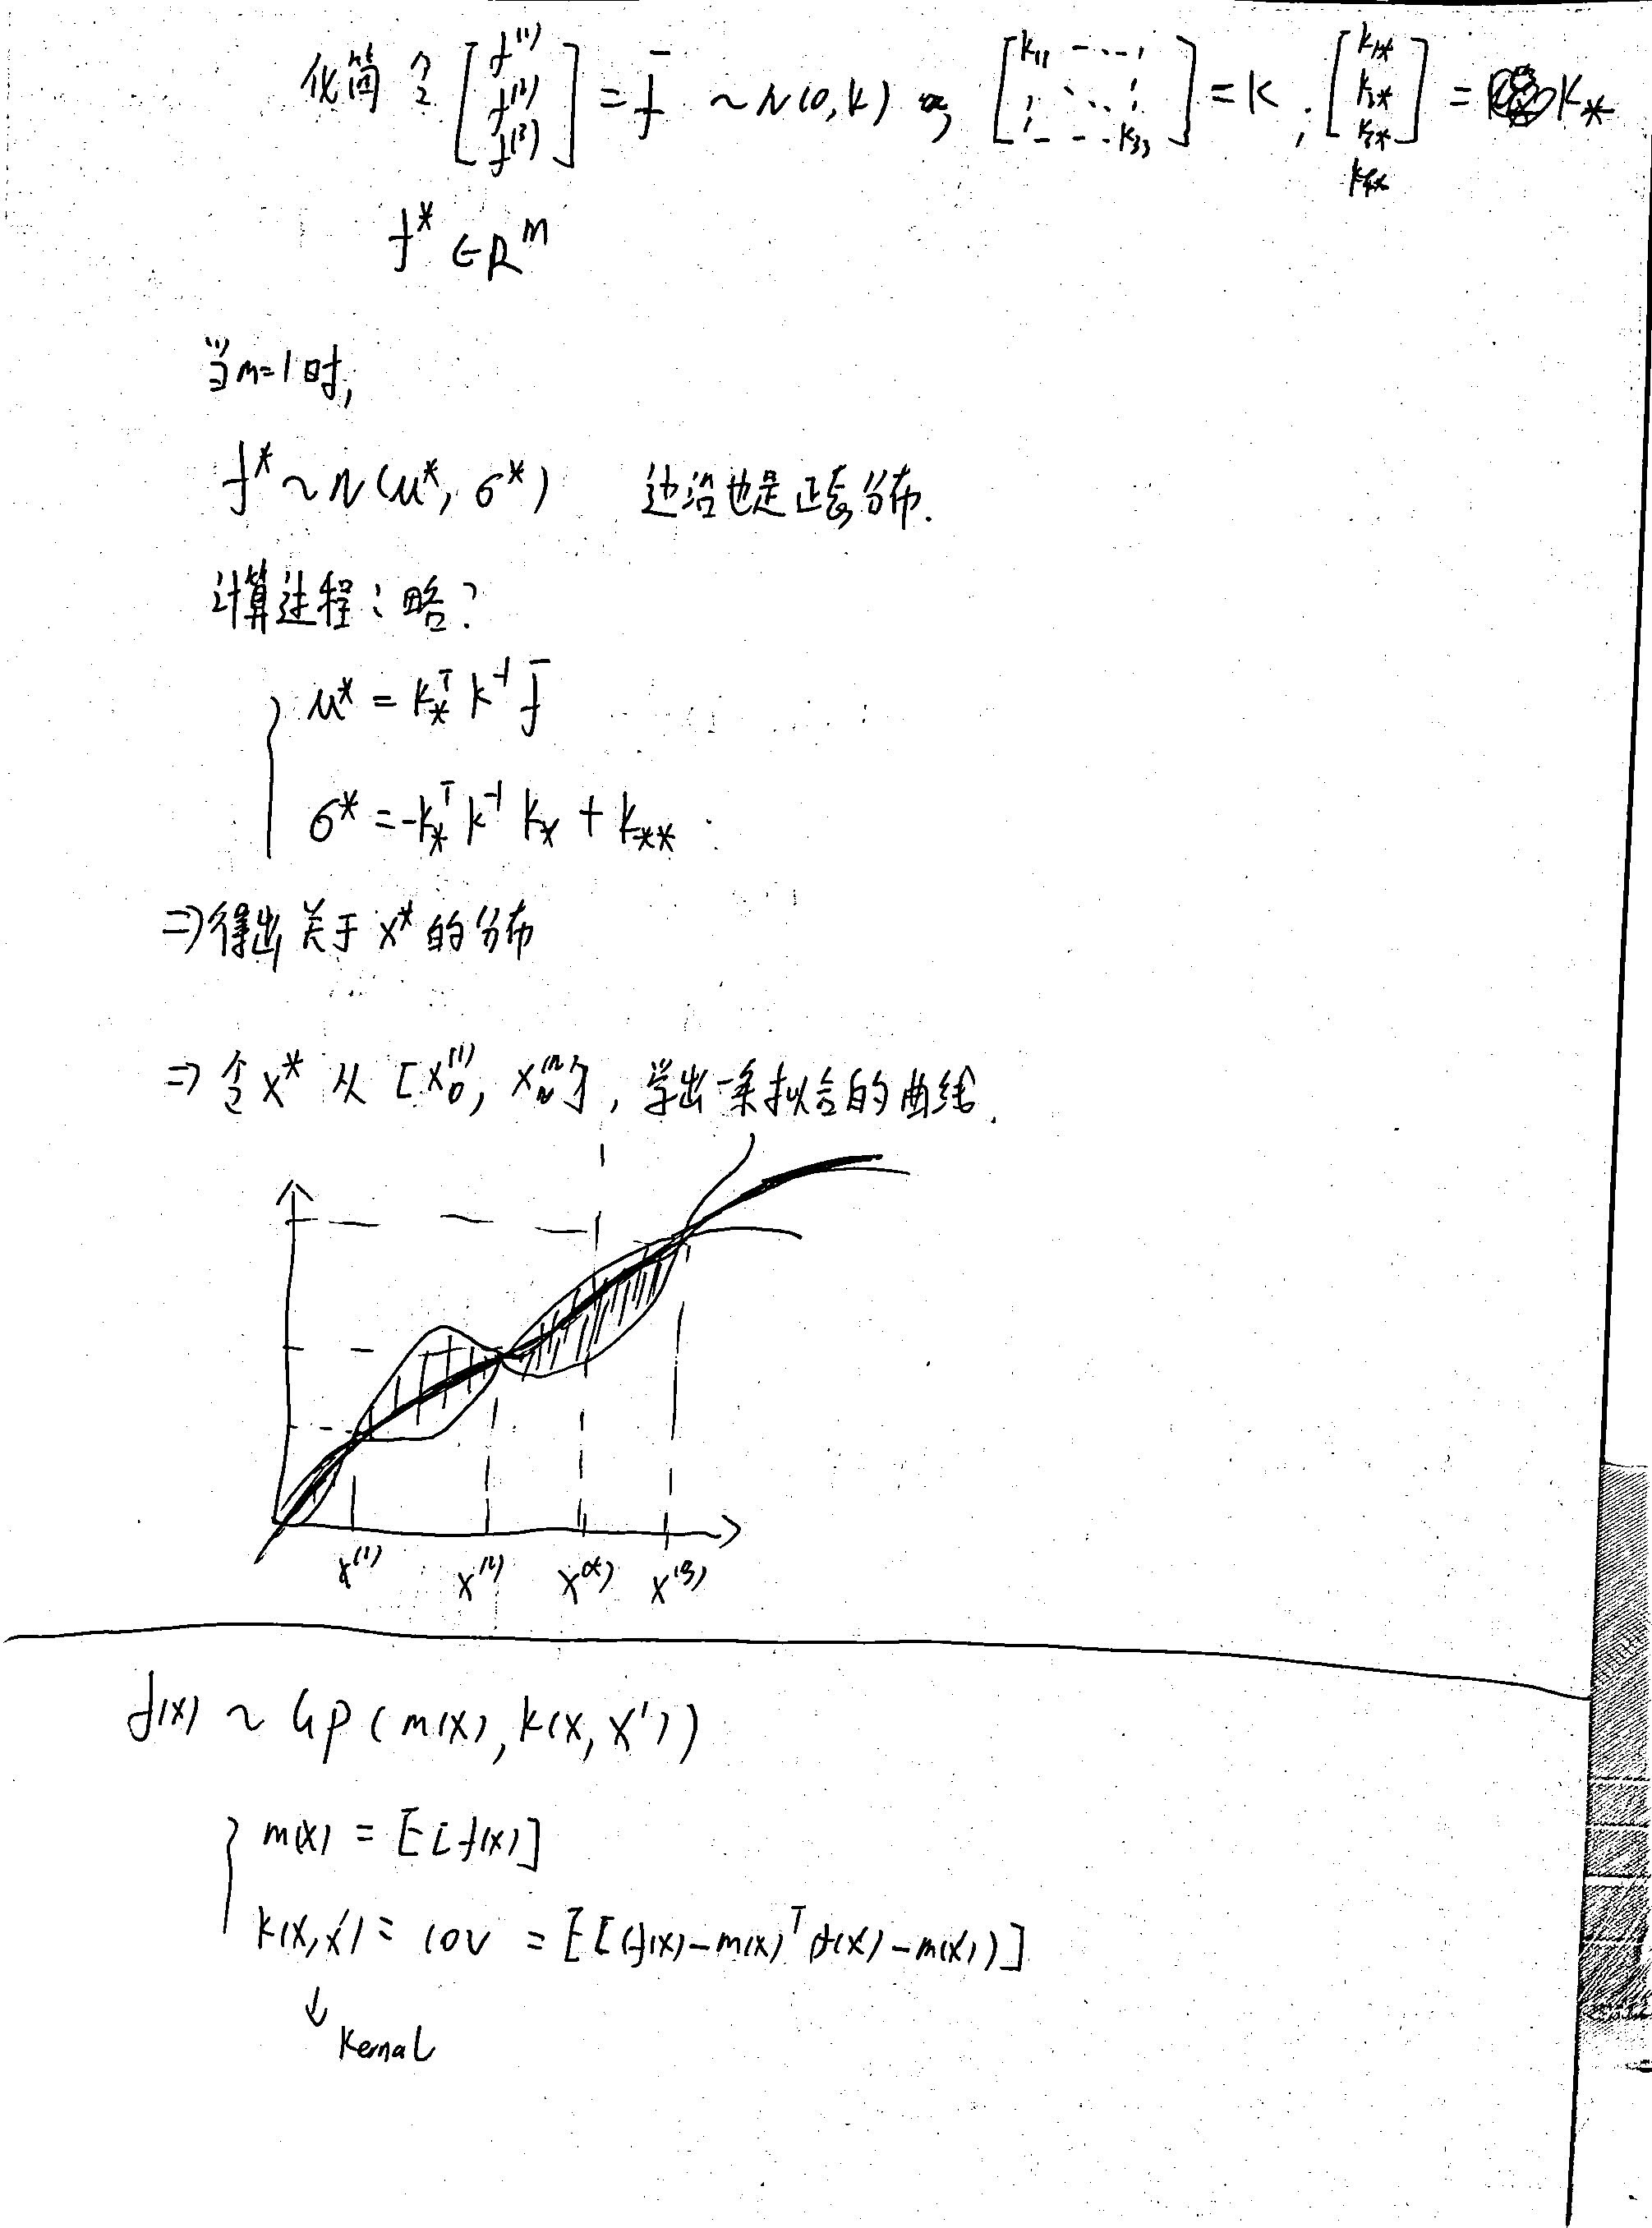 化简 令 [f⁽¹⁾ f⁽²⁾ f⁽³⁾] = f̄ ~ N(0, K) [k₁₁ ... k₃₃] = K ; [k₁* k₂* k₃*] = K*
f* ∈ R^m
当m=1时,
f* ~ N(μ*, σ*) 边沿也是正态分布.
计算过程: 略?
μ* = K*ᵀ K⁻¹ f̄
σ* = -K*ᵀ K⁻¹ K* + K**
⇒得出关于 x* 的分布
⇒ 令 x* 从 [x₀⁽¹⁾, x_N⁽ⁿ⁾], 学出一条拟合的曲线.
x⁽¹⁾ x⁽²⁾ x⁽*⁾ x⁽³⁾
f(x) ~ GP(m(x), k(x, x'))
m(x) = E[f(x)]
k(x,x') = cov = E[(f(x)-m(x)ᵀ f(x')-m(x'))]
↓
Kernal